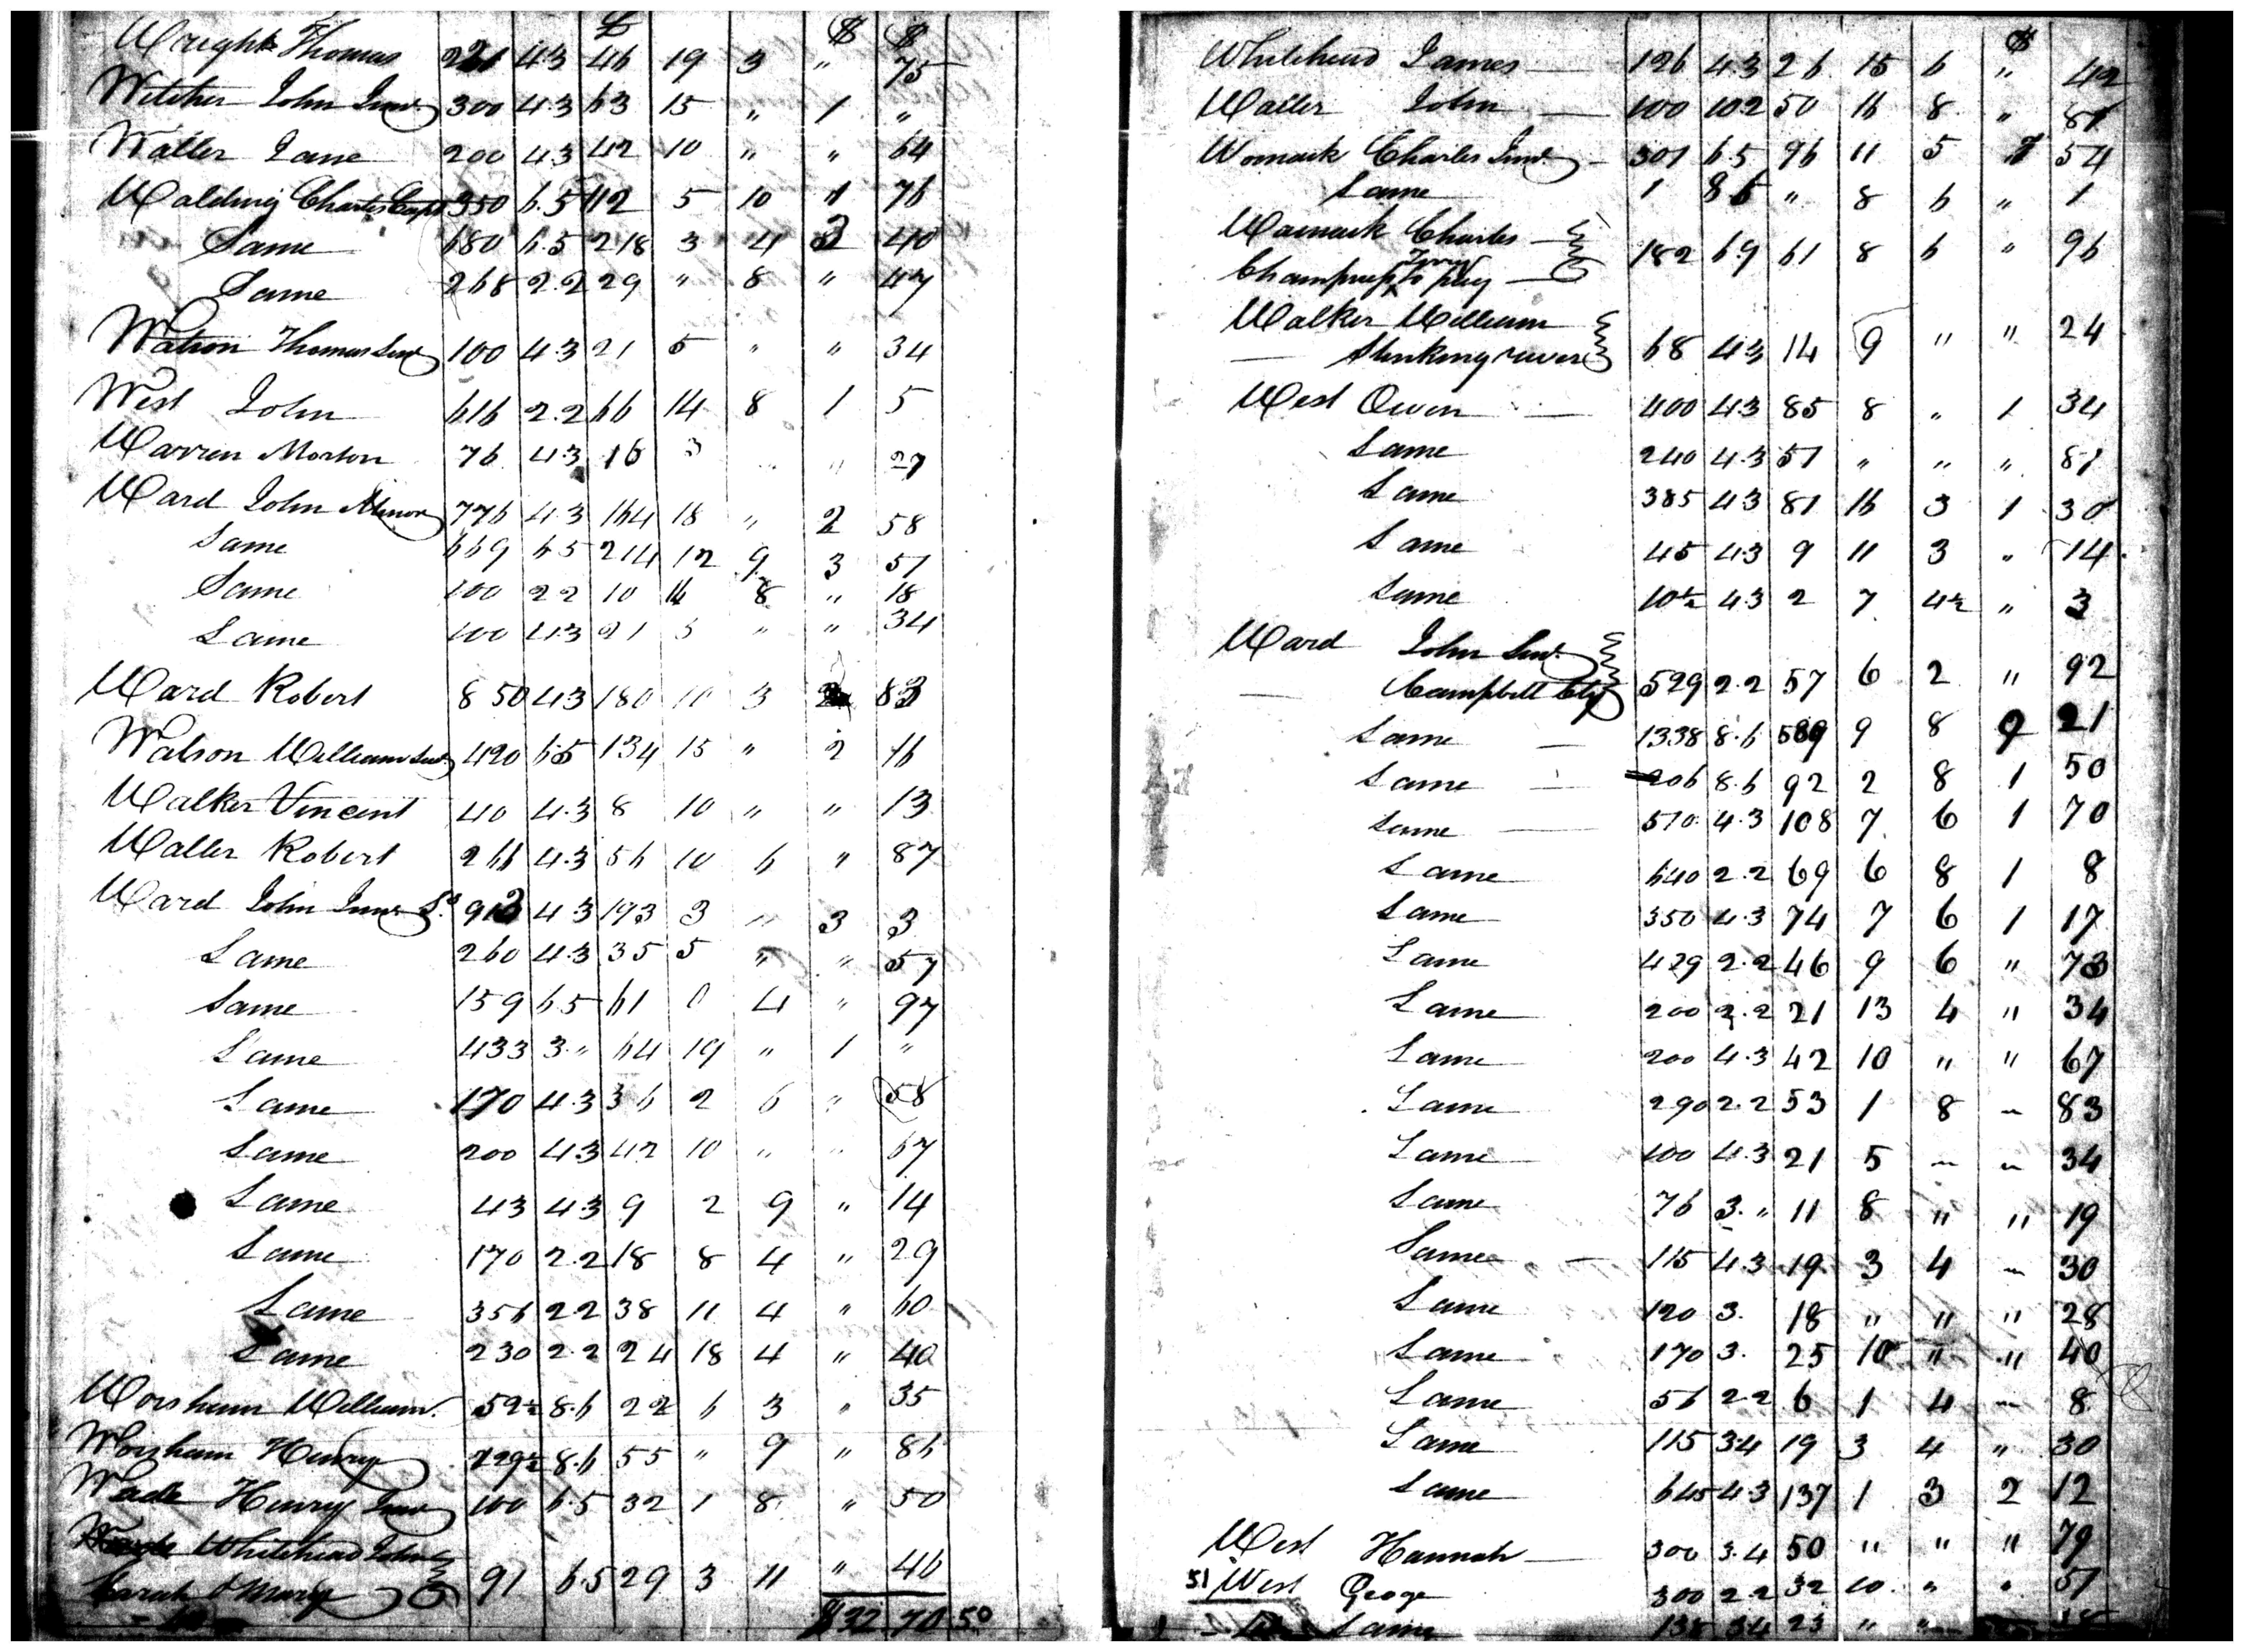 £ $ $
Wright Thomas 221 4.3 46 19 3 " 75
Witcher John Junr 300 4.3 63 15 " 1 "
Waller Jane 200 4.3 42 10 " " 64
Walding Charles Capt 350 6.5 112 5 10 1 76
Same 680 6.5 218 3 4 3 40
Same 268 2.2 29 " 8 " 47
Watson Thomas Junr 100 4.3 21 5 " " 34
West John 616 2.2 66 14 8 1 5
Warren Morton 76 4.3 16 3 " " 27
Ward John Minor 776 4.3 164 18 " 2 58
Same 669 6.5 214 12 9 3 57
Same 100 2.2 10 14 8 " 18
Same 100 4.3 21 5 " " 34
Ward Robert 850 4.3 180 11 3 83
Watson William Junr 420 6.5 134 15 " 2 16
Walker Vincent 40 4.3 8 10 " " 13
Waller Robert 266 4.3 56 10 6 " 87
Ward John Junr 913 4.3 193 3 " 3 3
Same 260 4.3 35 5 " " 57
Same 159 6.5 61 0 4 " 97
Same 433 3. " 64 19 " 1 "
Same 170 4.3 36 2 6 " 58
Same 200 4.3 42 10 " " 67
Same 43 4.3 9 2 9 " 14
Same 170 2.2 18 8 4 " 29
Same 356 2.2 38 11 4 " 60
Same 230 2.2 24 18 4 " 40
Worsham William 59½ 8.6 22 6 3 " 35
Worsham Henry 229½ 8.6 55 " 9 " 86
Wade Henry Junr 100 6.5 32 1 8 " 50
Whitehead John
Sarah & Mary 91 6.5 29 3 11 " 46
$32 70 50
$
Whitehead James 126 4.3 26 15 6 " 42
Waller John 100 10.2 50 16 8 " 81
Womack Charles Junr 301 6.5 96 11 5 1 54
Same 1 8 6 " 8 6 " 1
Womack Charles
182 6.9 61 8 6 " 96
Walker William
Stinking river 68 4.3 14 9 " " 24
West Owen 400 4.3 85 8 " 1 34
Same 240 4.3 51 " " " 81
Same 385 4.3 81 16 3 1 30
Same 45 4.3 9 11 3 " 14
Same 10½ 4.3 2 7 4½ " 3
Ward John Senr
Campbell Cty 529 2.2 57 6 2 " 92
Same 1338 8.6 589 9 8 9 21
Same 206 8.6 92 2 8 1 50
Same 510 4.3 108 7 6 1 70
Same 640 2.2 69 6 8 1 8
Same 350 4.3 74 7 6 1 17
Same 429 2.2 46 9 6 " 73
Same 200 2.2 21 13 4 " 34
Same 200 4.3 42 10 " " 67
Same 290 2.2 53 1 8 " 83
Same 100 4.3 21 5 " " 34
Same 76 3. " 11 8 " " 19
Same 115 4.3 19 3 4 " 30
Same 120 3. 18 " " " 28
Same 170 3. 25 10 " " 40
Same 56 2.2 6 1 4 " 8
Same 115 3.4 19 3 4 " 30
Same 645 4.3 137 1 3 2 12
West Hannah 300 3.4 50 " " " 79
51 West Geoge 300 2.2 32 10 " " 51
Same 138 3.4 23 " "